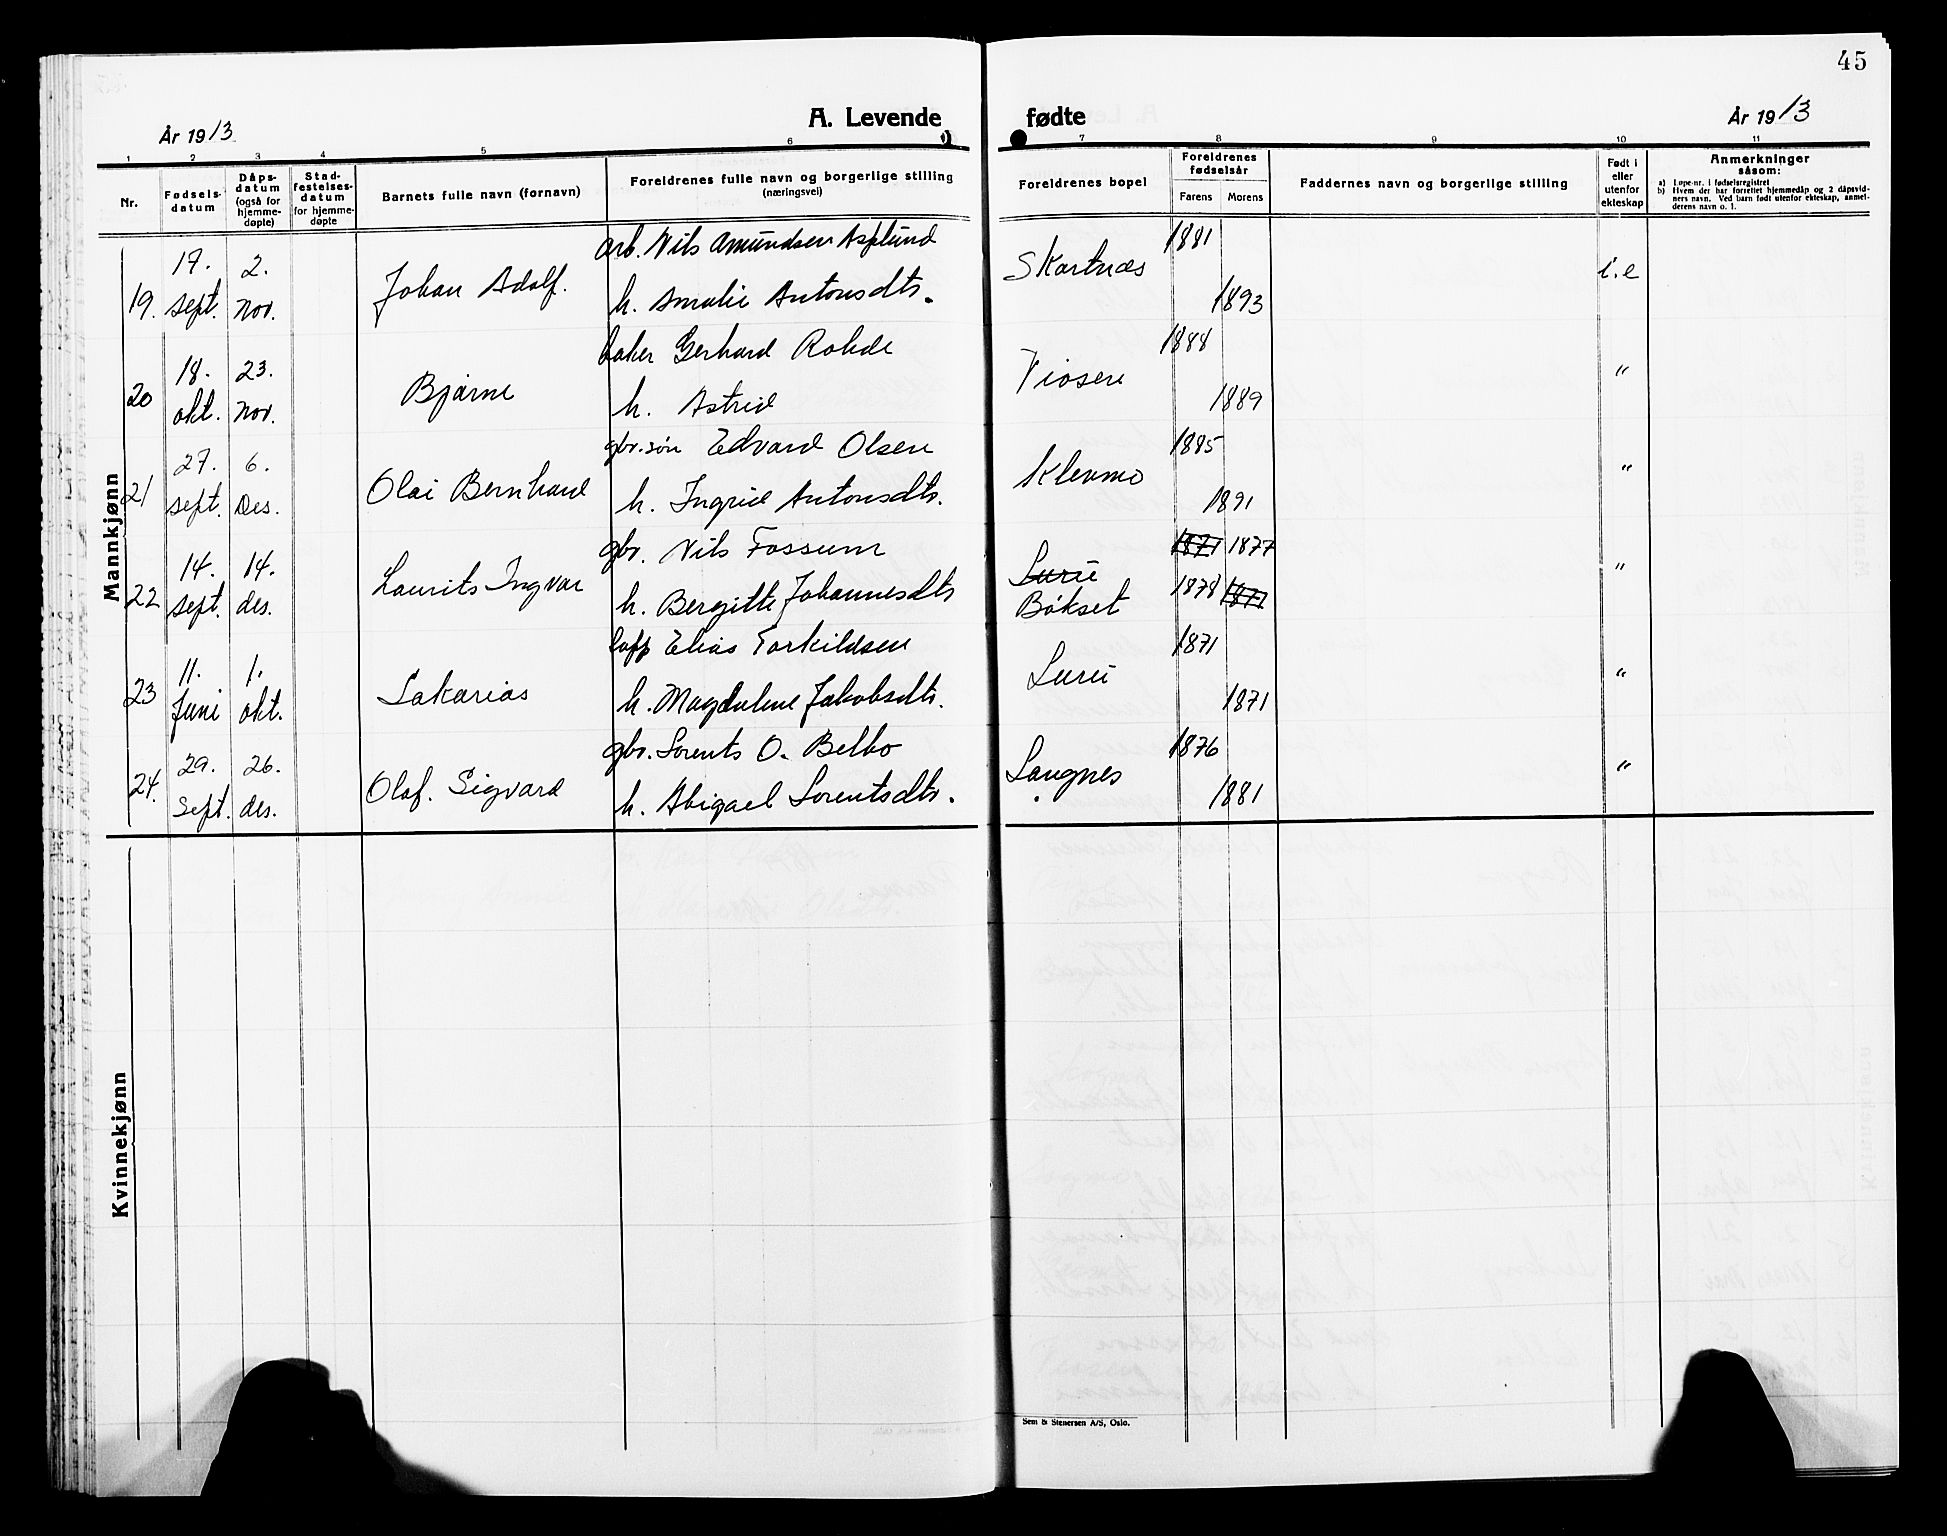 45
År 1913
A. Levende
fødte
År 1913
1 2 3 4 5 6 7 8 9 10 11
Nr.
Fødsels-
datum
Dåps-
datum
(også for
hjemme-
døpte)
Stad-
festelses-
datum
for hjemme-
døpte
Barnets fulle navn (fornavn)
Foreldrenes fulle navn og borgerlige stilling
(næringsvei)
Foreldrenes bopel
Foreldrenes
fødselsår
Farens Morens
Faddernes navn og borgerlige stilling
Født i
eller
utenfor
ekteskap
Anmerkninger
såsom:
a) Løpe-nr. i fødselsregistret
b) Hvem der har forrettet hjemmedåp og 2 dåpsvid-
ners navn. Ved barn født utenfor ekteskap, anmel-
derens navn o. l.
Mannkjønn
19. 17. sept. 2. nov. Johan Adolf.
arb. Nils Amundsen Asplund
h. Amalie Antonsdtr.
Skartnes 1881 1893 i.e
20 18. okt. 23. nov. Bjarne
baker Gerhard Rohde
h. Astrid
Viosen 1888 1889 "
21 27. sept. 6. Des. Olai Bernhard
gbr.søn Edvard Olsen
h. Ingrid Antonsdtr.
Klevmo 1885 1891 "
22 14. sept. 14. des. Laurits Ingvar
gbr. Nils Fossum
h. Bergitte Johannesdtr
Luru
Bøkset
1871 1877
1878 1877 "
23 11. Juni 1. okt. Sakarias
Elias Torkildsen
h. Magdalene Jakobsdtr.
Luru 1871 1871 "
24. 29. Sept. 26. des. Olaf. Sigvard
gbr. Lorents O. Belbo
h. Abigael Lorentsdtr.
Langnes 1876 1881 "
Kvinnekjønn
Sem & Stenersen A/S, Oslo.